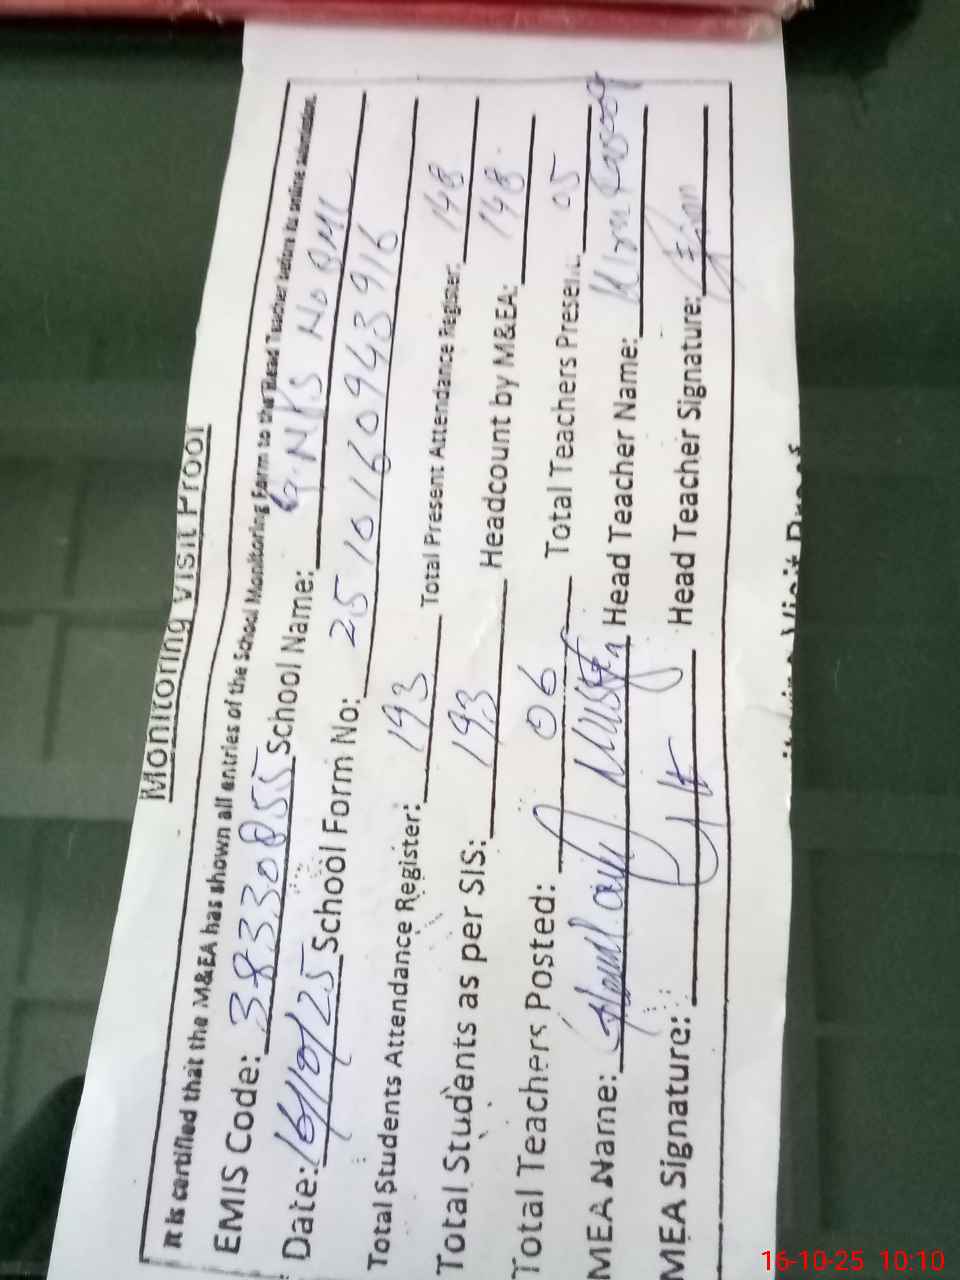 Monitoring Visit Proof
It is certified that the M&EA has shown all entries of the School Monitoring Form to the Head Teacher before to online submission.
EMIS Code: 38330855 School Name: GMPS No
Date: 16/10/25 School Form No: 2510160943916
Total Students Attendance Register: 193 Total Present Attendance Register: 148
Total Students as per SIS: 193 Headcount by M&EA: 148
Total Teachers Posted: 06 Total Teachers Present: 05
MEA Name: Mustafa Head Teacher Name:
MEA Signature: Head Teacher Signature:
16-10-25 10:10